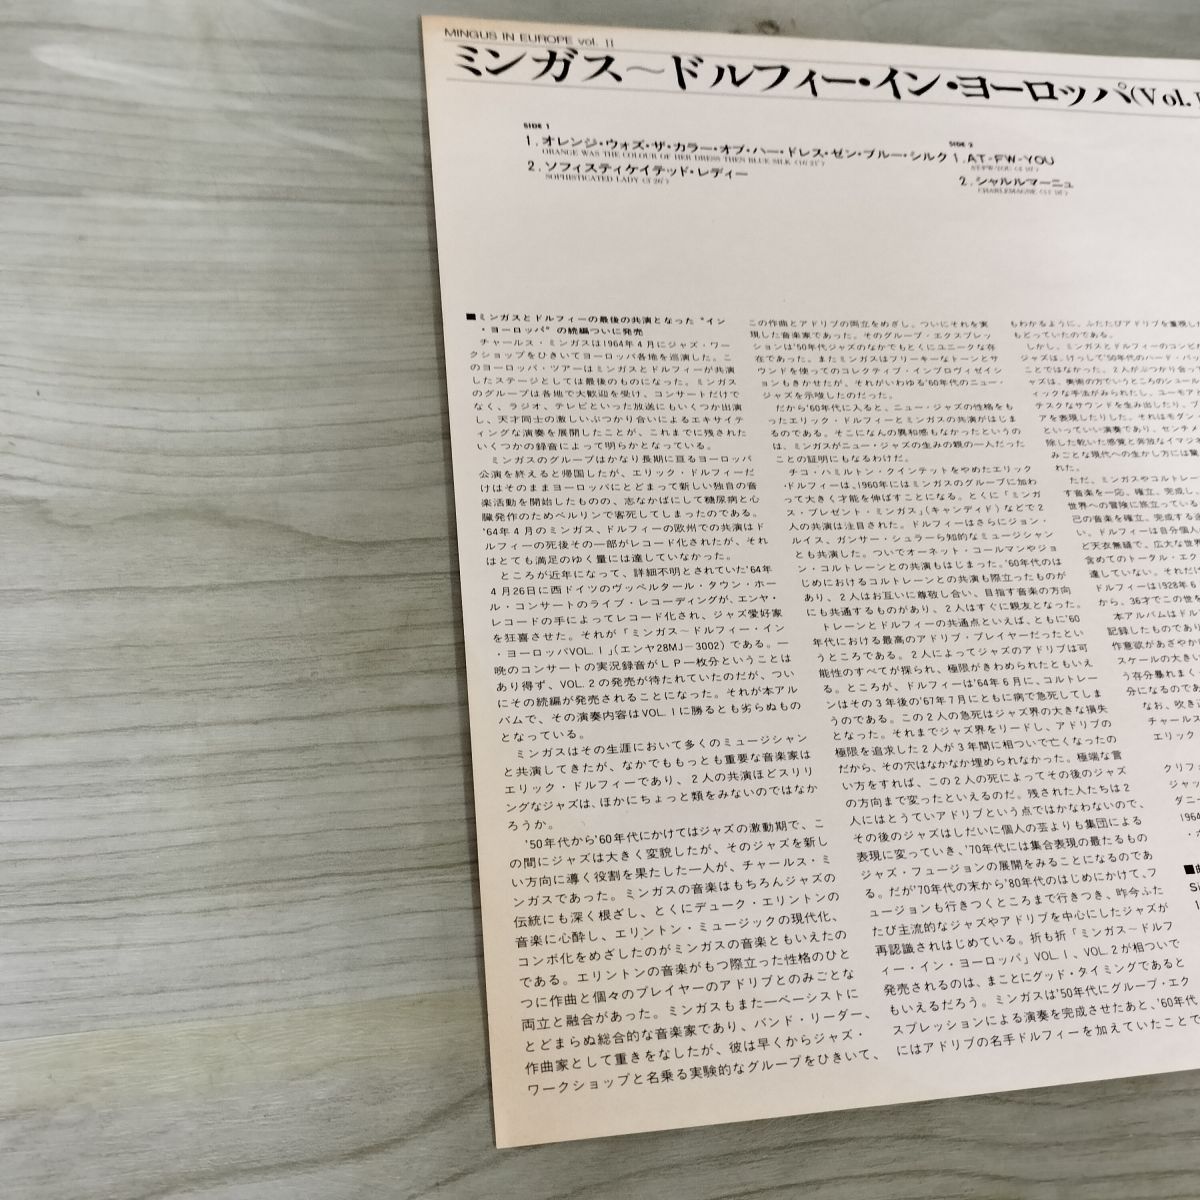 MINGUS IN EUROPE vol. II
ミンガス〜ドルフィー・イン・ヨーロッパ(Vol.
SIDE 1
1. オレンジ・ウォズ・ザ・カラー・オブ・ハー・ドレス・ゼン・ブルー・シルク
ORANGE WAS THE COLOUR OF HER DRESS THEN BLUE SILK
2. ソフィスティケイテッド・レディー
SOPHISTICATED LADY
SIDE 2
1. AT-FW-YOU
AT-FW-YOU
2. シャルルマーニュ
CHARLEMAGNE
■ミンガスとドルフィーの最後の共演となった“イン
・ヨーロッパ”の続編ついに発売
チャールス・ミンガスは1964年4月にジャズ・ワー
クショップをひきいてヨーロッパ各地を巡演した。こ
のヨーロッパ・ツアーはミンガスとドルフィーが共演
したステージとしては最後のものになった。ミンガス
のグループは各地で大歓迎を受け、コンサートだけで
なく、ラジオ、テレビといった放送にもいくつか出演
し、天才同士の激しいぶつかり合いによるエキサイテ
ィングな演奏を展開したことが、これまでに残された
いくつかの録音によって明らかとなっている。
ミンガスのグループはかなり長期に亘るヨーロッパ
公演を終えると帰国したが、エリック・ドルフィーだ
けはそのままヨーロッパにとどまって新しい独自の音
楽活動を開始したものの、志なかばにして糖尿病と心
臓発作のためベルリンで客死してしまったのである。
'64年4月のミンガス、ドルフィーの欧州での共演はド
ルフィーの死後その一部がレコード化されたが、それ
はとても満足のゆく量には達していなかった。
ところが近年になって、詳細不明とされていた'64年
4月26日に西ドイツのヴッペルタール・タウン・ホー
ル・コンサートのライブ・レコーディングが、エンヤ・
レコードの手によってレコード化され、ジャズ愛好家
を狂喜させた。それが「ミンガス〜ドルフィー・イン
・ヨーロッパVOL. I」(エンヤ28MJ-3002)である。一
晩のコンサートの実況録音がLP一枚分ということは
あり得ず、VOL. 2の発売が待たれていたのだが、つい
にその続編が発売されることになった。それが本アル
バムで、その演奏内容はVOL. Iに勝るとも劣らぬもの
となっている。
ミンガスはその生涯において多くのミュージシャン
と共演してきたが、なかでももっとも重要な音楽家は
エリック・ドルフィーであり、2人の共演ほどスリリ
ングなジャズは、ほかにちょっと類をみないのではなか
ろうか。
'50年代から'60年代にかけてはジャズの激動期で、こ
の間にジャズは大きく変貌したが、そのジャズを新し
い方向に導く役割を果たした一人が、チャールス・ミ
ンガスであった。ミンガスの音楽はもちろんジャズの
伝統にも深く根ざし、とくにデューク・エリントンの
音楽に心酔し、エリントン・ミュージックの現代化、
コンボ化をめざしたのがミンガスの音楽ともいえたの
である。エリントンの音楽がもつ際立った性格のひと
つに作曲と個々のプレイヤーのアドリブとのみごとな
両立と融合があった。ミンガスもまた一ベーシストに
とどまらぬ総合的な音楽家であり、バンド・リーダー、
作曲家として重きをなしたが、彼は早くからジャズ・
ワークショップと名乗る実験的なグループをひきいて、
この作曲とアドリブの両立をめざし、ついにそれを実
現した音楽家であった。そのグループ・エクスプレッ
ションは'50年代ジャズのなかでもとくにユニークな存
在であった。またミンガスはフリーキーなトーンとサ
ウンドを使ってのコレクティブ・インプロヴィゼイシ
ョンもきかせたが、それがいわゆる'60年代のニュー・
ジャズを示唆したのだった。
だから'60年代に入ると、ニュー・ジャズの性格をも
ったエリック・ドルフィーとミンガスの共演がはじま
るのである。そこになんの異和感もなかったというの
は、ミンガスがニュー・ジャズの生みの親の一人だった
ことの証明にもなるわけだ。
チコ・ハミルトン・クインテットをやめたエリック
・ドルフィーは、1960年にはミンガスのグループに加わ
って大きく才能を伸ばすことになる。とくに「ミンガ
ス・プレゼント・ミンガス」(キャンディド)などで2
人の共演は注目された。ドルフィーはさらにジョン・
ルイス、ガンサー・シュラーら知的なミュージシャン
とも共演した。ついでオーネット・コールマンやジョ
ン・コルトレーンとの共演もはじまった。'60年代のは
じめにおけるコルトレーンとの共演も際立ったものが
あり、2人はお互いに尊敬し合い、目指す音楽の方向
にも共通するものがあり、2人はすぐに親友となった。
トレーンとドルフィーの共通点といえば、ともに'60
年代における最高のアドリブ・プレイヤーだったとい
うところである。2人によってジャズのアドリブは可
能性のすべてが探られ、極限がきわめられたともいえ
る。ところが、ドルフィーは'64年6月に、コルトレー
ンはその3年後の'67年7月にともに病で急死してしま
うのである。この2人の急死はジャズ界の大きな損失
となった。それまでジャズ界をリードし、アドリブの
極限を追求した2人が3年間に相ついで亡くなったの
だから、その穴はなかなか埋められなかった。極端な言
い方をすれば、この2人の死によってその後のジャズ
の方向まで変ったといえるのだ。残された人たちは2
人にはとうていアドリブという点ではかなわないので、
その後のジャズはしだいに個人の芸よりも集団による
表現に変っていき、'70年代には集合表現の最たるもの
ジャズ・フュージョンの展開をみることになるのであ
る。だが'70年代の末から'80年代のはじめにかけて、フ
ュージョンも行きつくところまで行きつき、昨今ふた
たび主流的なジャズやアドリブを中心にしたジャズが
再認識されはじめている。折も折「ミンガス〜ドルフ
ィー・イン・ヨーロッパ」VOL. I、VOL. 2が相ついで
発売されるのは、まことにグッド・タイミングであると
もいえるだろう。ミンガスは'50年代にグループ・エク
スプレッションによる演奏を完成させたあと、'60年代
にはアドリブの名手ドルフィーを加えていたことで
もわかるように、ふたたびアドリブを重視し
もどっていたのである。
しかし、ミンガスとドルフィーのコンビが
ジャズは、けっして'50年代のハード・バッ
ことではなかった。2人がぶつかり合って
ャズは、美術の方でいうところのシュール
ィックな手法がみられたし、ユーモアと
テスクなサウンドを生み出したり、ブ
アを表現したりした。それはモダン
といっていい演奏であり、センチメ
除した乾いた感覚と奔放なイマジネ
みごとな現代への生かし方には驚
れた。
ただ、ミンガスやコルトレー
す音楽を一応、確立、完成し
世界への冒険に旅立っている
己の音楽を確立、完成する
い。ドルフィーは自分個人
ど天衣無縫で、広大な世界
含めてのトータル・エク
達していない。それだけ
ドルフィーは1928年6
から、36才でこの世を
本アルバムはドル
記録したものであり
作意欲があざやか
スケールの大きい
う存分暴れまく
分になるのであ
なお、吹き込
チャールス
エリック・
クリフォ
ジャッ
ダニー
1964
・ホ
■曲
Si
1